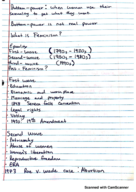 Bottom-power : when women use their
sexuality to get what they want
Bottom-power is not real power
What is Feminism?
Equality
First-wave (1790s - 1920s)
Second-wave (1960s - 1980s)
Third-wave (1990s)
First wave
Education
Economic and workplace
Marriage and property
1848 Seneca Falls Convention
Legal rights
Voting
1920 19th Amendment
Second Wave
Patriarchy
Abuse of women
Women's liberation
Reproductive freedom
ERA
1973 Roe v. Wade case : Abortion
Scanned with CamScanner